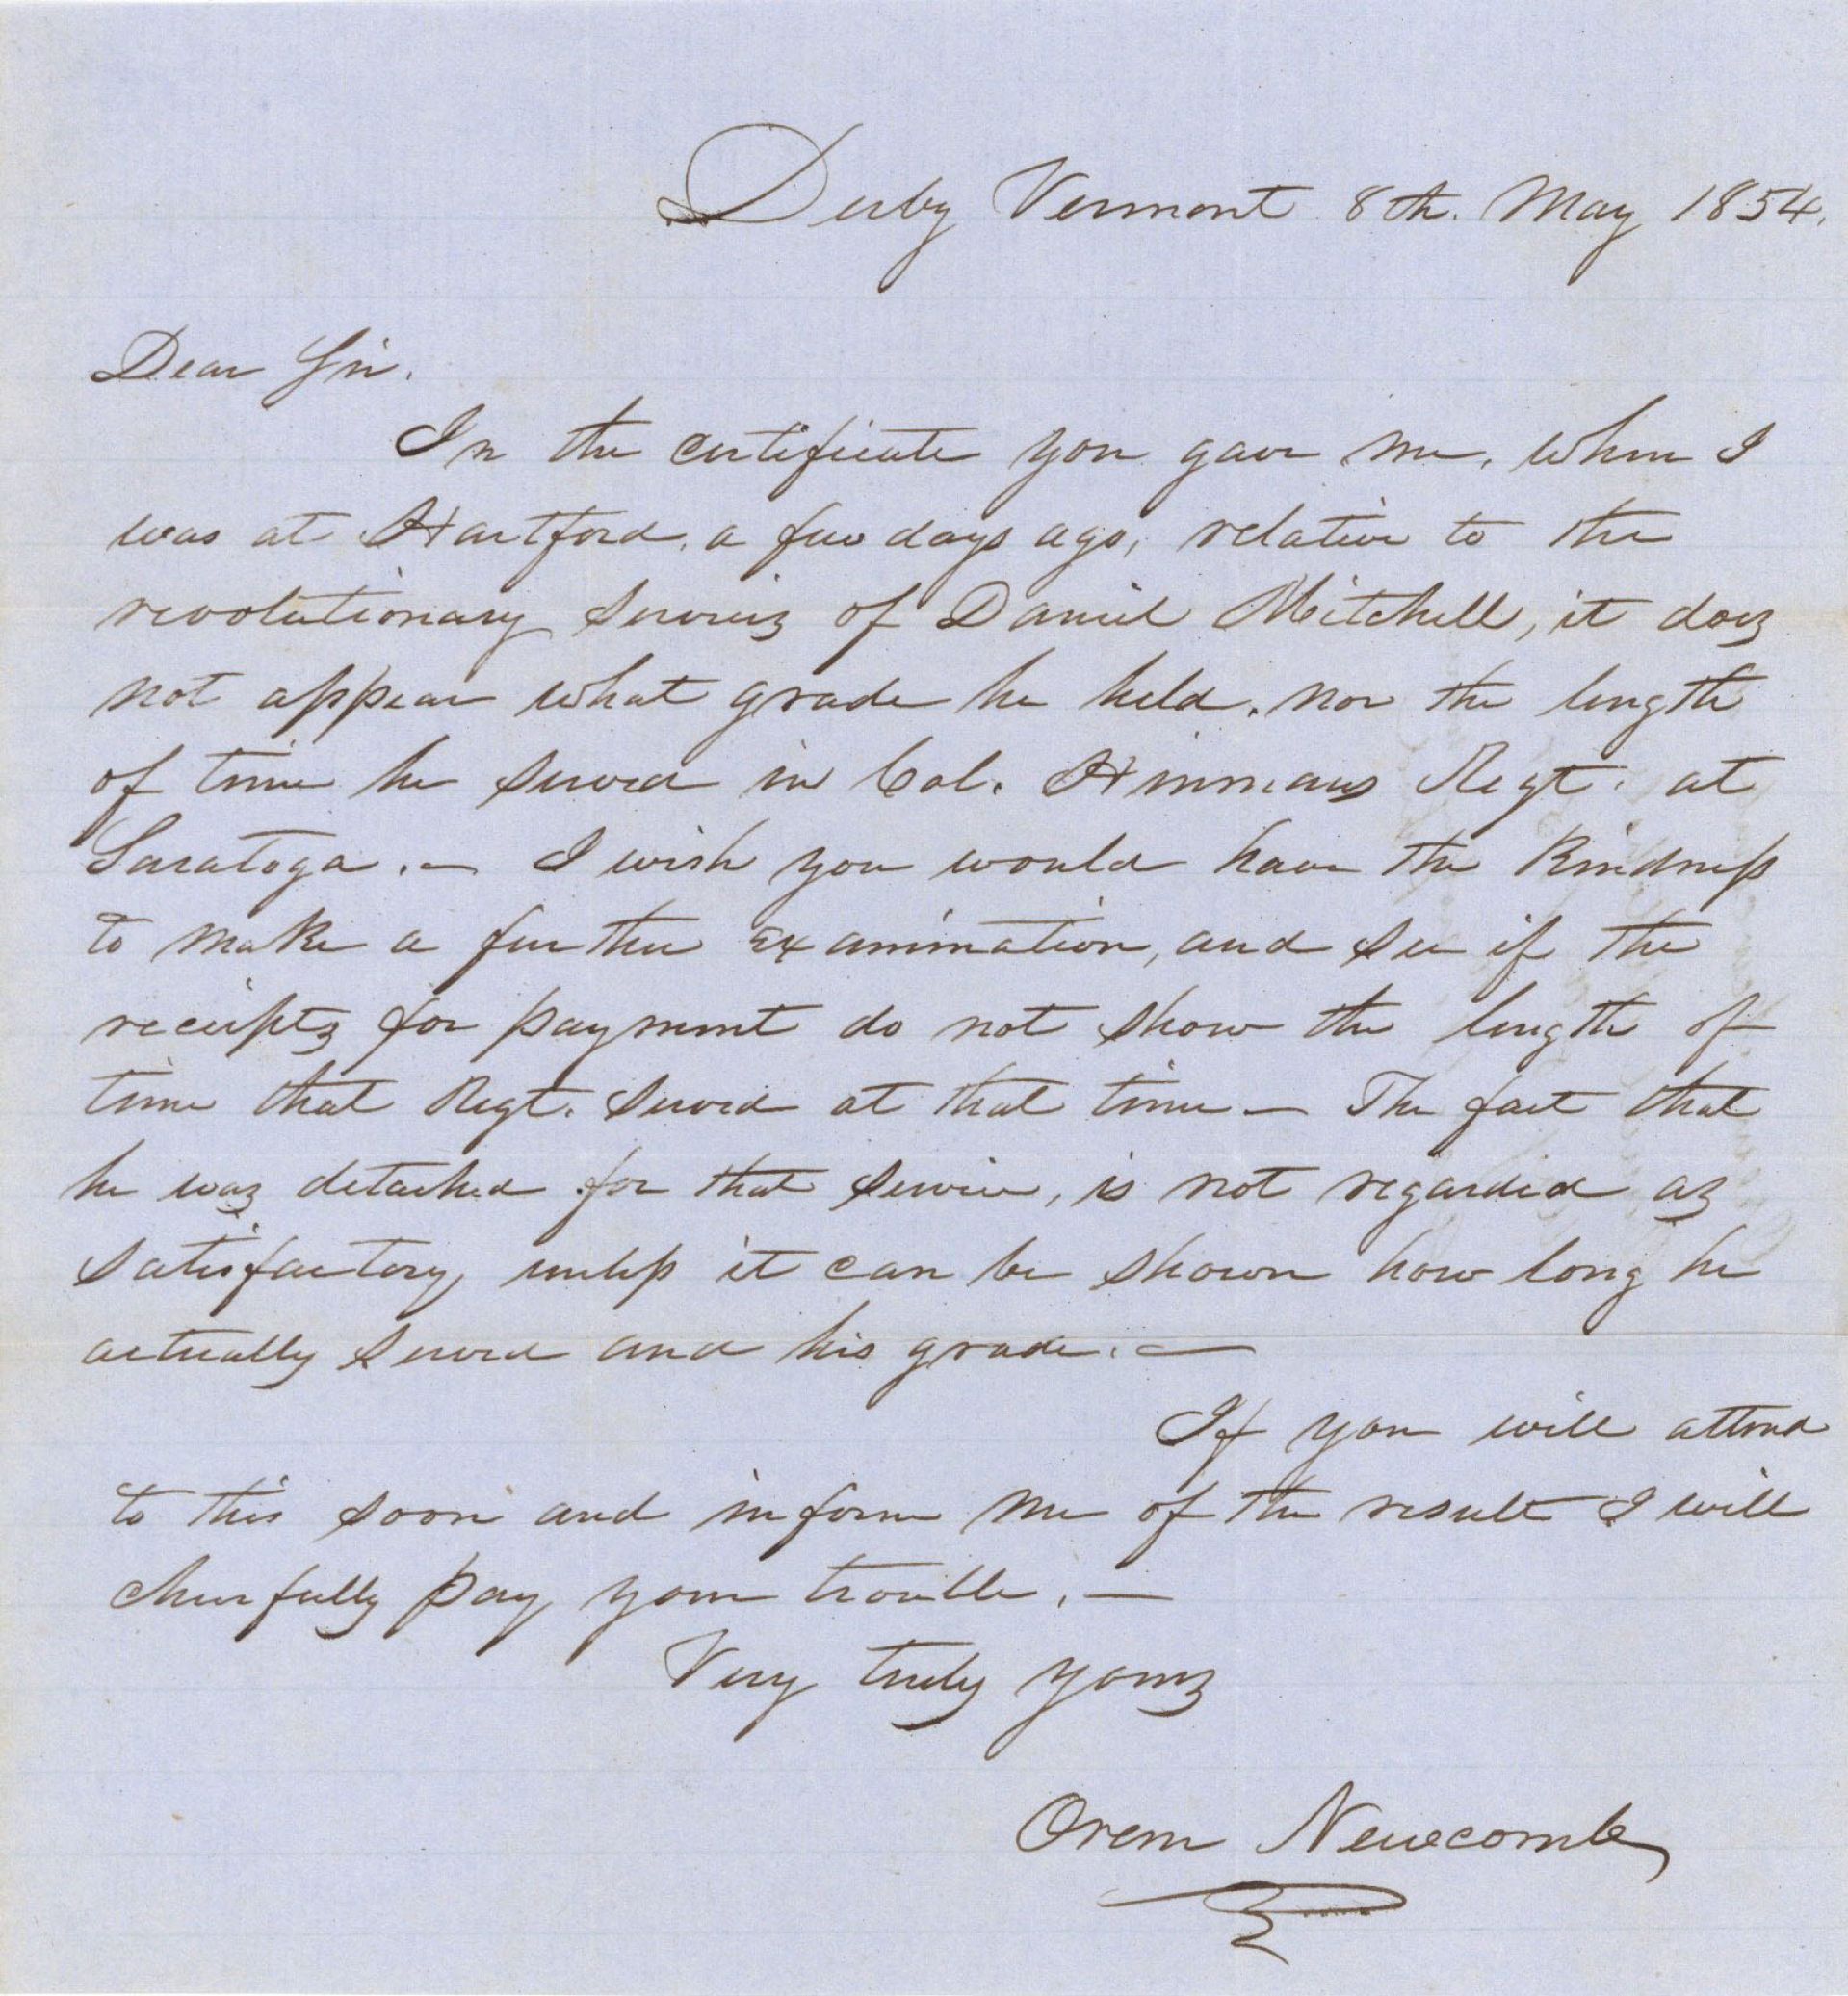 Derby Vermont 8th. May 1854.
Dear Sir.
In the certificate you gave me, when I
was at Hartford, a few days ago, relative to the
revolutionary services of Daniel Mitchell, it does
not appear what grade he held, nor the length
of time he served in Col. Hinmans Regt. at
Saratoga. — I wish you would have the kindness
to make a further examination, and see if the
receipts for payment do not show the length of
time that Regt. served at that time — The fact that
he was detached for that service, is not regarded as
satisfactory, unless it can be shown how long he
actually served and his grade. —
If you will attend
to this soon and inform me of the result I will
cheerfully pay your trouble. —
Very truly yours
Orem Newcomb